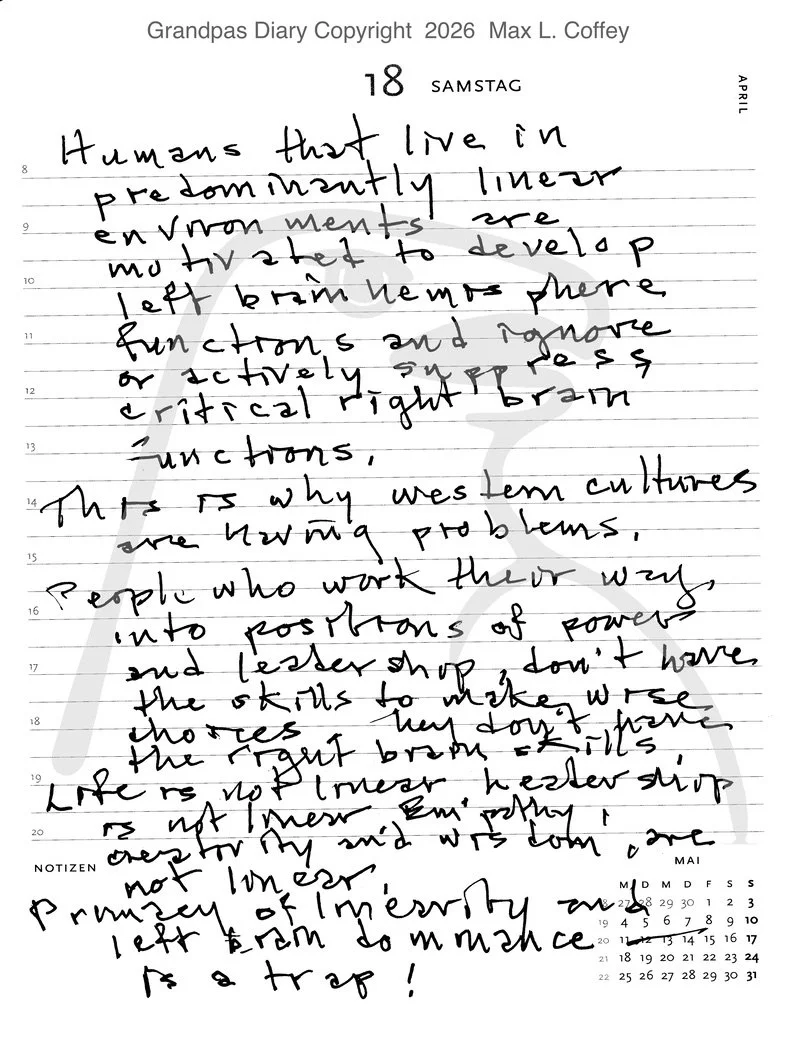 Grandpas Diary Copyright 2026 Max L. Coffey
18 SAMSTAG
APRIL
Humans that live in
8
predominantly linear
9
environments are
motivated to develop
10
left brain hemisphere
11
functions and ignore
or actively suppress
12
critical right brain
13
functions.
14
This is why western cultures
are having problems.
15
People who work their way
16
into positions of power
17
and leadership, don't have
the skills to make wise
18
choices. They don't have
the right brain skills.
19
Life is not linear leadership
is not linear Empathy,
20
creativity and wisdom, are
NOTIZEN
not linear.
Primacy of linearity and
left brain dominance
is a trap!
MAI
M D M D F S S
18 27 28 29 30 1 2 3
19 4 5 6 7 8 9 10
20 11 12 13 14 15 16 17
21 18 19 20 21 22 23 24
22 25 26 27 28 29 30 31